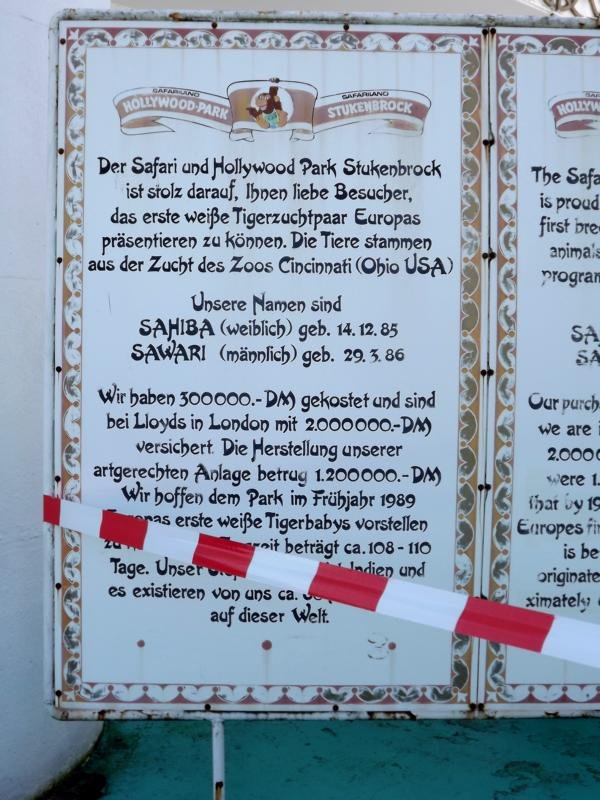 SAFARILAND SAFARILAND
HOLLYWOOD-PARK STUKENBROCK
Der Safari und Hollywood Park Stukenbrock
ist stolz darauf, Ihnen liebe Besucher,
das erste weiße Tigerzuchtpaar Europas
präsentieren zu können. Die Tiere stammen
aus der Zucht des Zoos Cincinnati (Ohio USA)
Unsere Namen sind
SAHIBA (weiblich) geb. 14.12.85
SAWARI (männlich) geb. 29.3.86
Wir haben 300000.-DM gekostet und sind
bei Lloyds in London mit 2.000000.-DM
versichert. Die Herstellung unserer
artgerechten Anlage betrug 1.200000.-DM
Wir hoffen dem Park im Frühjahr 1989
erste weiße Tigerbabys vorstellen
beträgt ca. 108 - 110
Tage. Indien und
es existieren von uns ca.
auf dieser Welt.
HOLLYW
The Safa
is proud
first bree
animals
program
SA
SA
Our purch
we are i
2.000
were 1.
that by 19
Europes fir
is be
originate
ximately